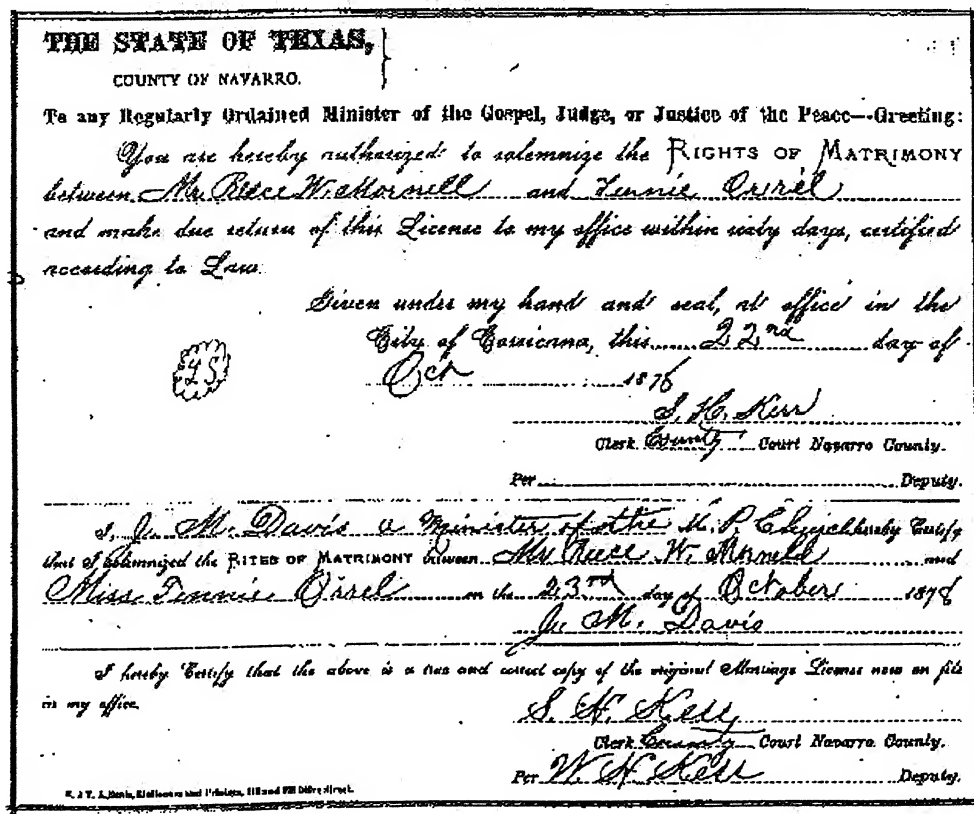 THE STATE OF TEXAS,
COUNTY OF NAVARRO.
To any Regularly Ordained Minister of the Gospel, Judge, or Justice of the Peace--Greeting:
You are hereby authorized to solemnize the RIGHTS OF MATRIMONY
between Mr. Reece W. Mornell and Tennie Orrel
and make due return of this License to my office within sixty days, certified
according to Law.
Given under my hand and seal, at office in the
City of Corsicana, this 22nd day of
L S
Oct 1878
S. H. Kerr
Clerk County Court Navarro County.
Per Deputy.
I, J. M. Davis a Minister of the M. P. Church hereby Certify
that I solemnized the RITES OF MATRIMONY between Mr Reece W. Mornell and
Miss Tennie Orrel on the 23rd day of October 1878
J. M. Davis
I hereby Certify that the above is a true and correct copy of the original Marriage License now on file
in my office.
S. H. Kerr
Clerk County Court Navarro County.
Per W. H. Kerr Deputy.
Stationers and Printers,